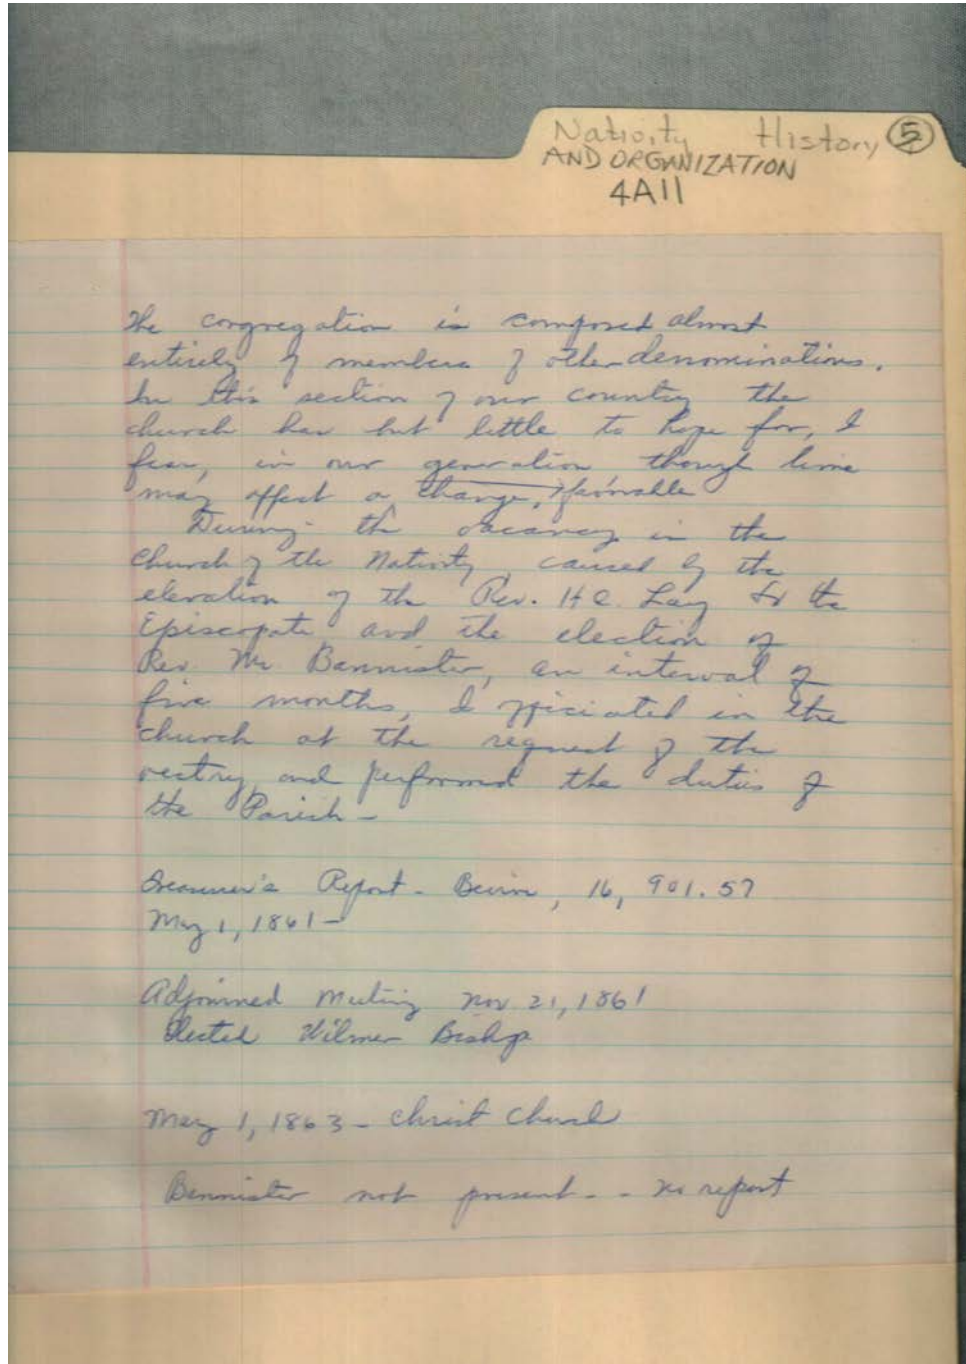 Nativity History 5
AND ORGANIZATION
4A11
The congregation is composed almost
entirely of members of other denominations.
In this section of our country the
church has but little to hope for, I
fear, in our generation, though time
may affect a change, favorable
During the vacancy in the
Church of the Nativity, caused by the
elevation of the Rev. H C. Lay to the
Episcopate and the election of
Rev. Mr Bannister, an interval of
five months, I officiated in the
church at the request of the
vestry, and performed the duties of
the Parish -
Treasurer's Report - 16, 901.57
May 1, 1861 -
Adjourned Meeting Nov 21, 1861
Elected Wilmer Bishop
May 1, 1863 - Christ Church
Bannister not present - - no report